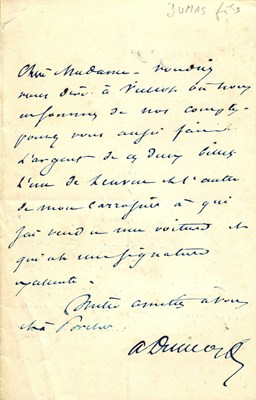 DUMAS fils
Chère Madame - voudriez
vous dire à où nous
en sommes de nos comptes
pouvez vous aussi faire
l'argent de ces deux billets
L'un de et l'autre
de mon carrossier à qui
j'ai vendu une voiture et
qui est une signature
excellente.
amitiés à vous
et à Porcher
A Dumas f